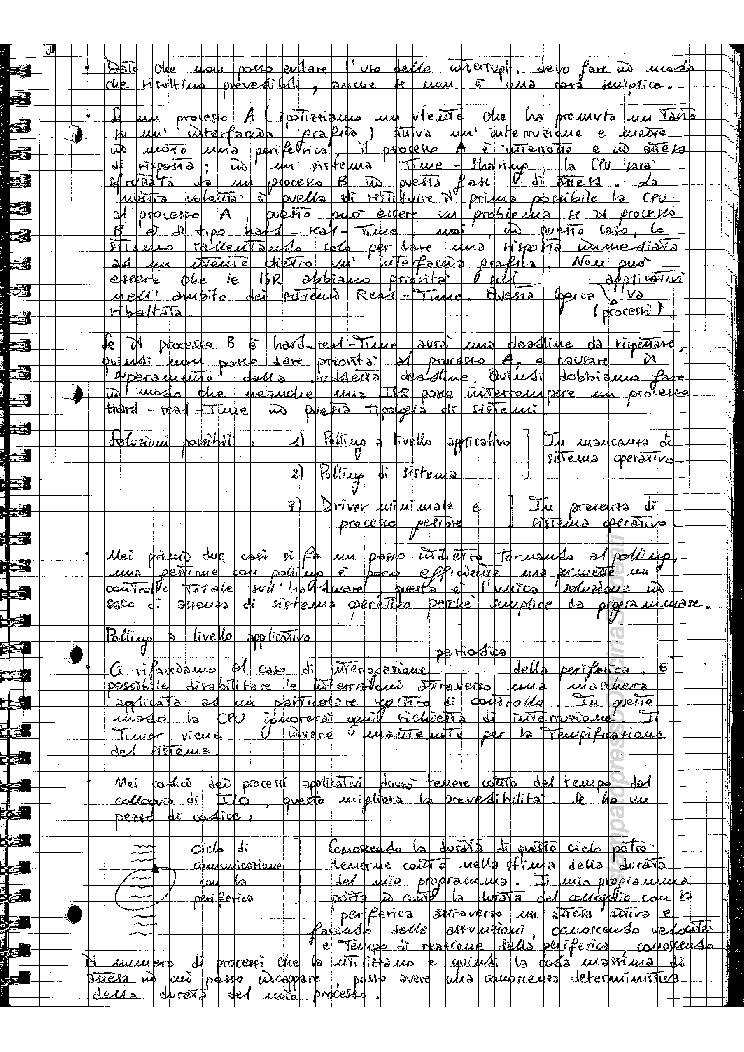 Dato che non posso evitare l'uso delle interrupt, devo fare in modo
che risultino prevedibili, anche se non è una cosa semplice.
Se un processo A (ipotizziamo un utente che ha premuto un tasto
su un' interfaccia grafica) attiva un' interruzione e mette
in moto una periferica, il processo A è interrotto e in attesa
di risposta; in un sistema Time-Sharing la CPU sarà
sfruttata da un processo B in questa fase di attesa. La
nostra volontà è quella di restituire il prima possibile la CPU
al processo A, questo può essere un problema se il processo
B è di tipo hard-real-Time, noi in questo caso, lo
stiamo rallentando solo per dare una risposta immediata
ad un utente dietro un' interfaccia grafica. Non può
essere che le ISR abbiano priorità sugli applicativi
nell' ambito dei sistemi Real-Time. Questa logica va
ribaltata. (processi)
Se il processo B è hard-real-Time avrà una deadline da rispettare,
quindi non posso dare priorità al processo A, e causare il
superamento della suddetta deadline. Quindi dobbiamo fare
in modo che neanche una ISR possa interrompere un processo
hard-real-Time in questa tipologia di sistemi.
Soluzioni possibili: 1) Polling a livello applicativo ] In mancanza di
sistema operativo
2) Polling di sistema
3) Driver minimale e ] In presenza di
processo gestore sistema operativo
Nei primi due casi si fa un passo indietro tornando al polling,
una gestione con polling è poco efficiente ma permette un
controllo totale sull' hardware, questa è l'unica soluzione in
caso di assenza di sistema operativo perché semplice da programmare.
Polling a livello applicativo
periodica
Ci rifacciamo al caso di interrogazione della periferica. È
possibile disabilitare le interruzioni attraverso una maschera
applicata ad un particolare registro di controllo. In questo
modo la CPU ignorerà ogni richiesta di interruzione. Il
Timer viene invece mantenuto per la Tempificazione
del sistema.
Nei codici dei processi applicativi dovrò tenere conto del tempo del
colloquio di I/O, questo migliora la prevedibilità. Se ho un
pezzo di codice:
Ciclo di
comunicazione
con la
periferica
Conoscendo la durata di questo ciclo potrò
tenerne conto nella stima della durata
del mio programma. Il mio programma
porta in conto la durata del colloquio con la
periferica attraverso un attesa attiva e
facendo delle assunzioni, conoscendo velocità
e Tempo di reazione della periferica conoscendo
il numero di processi che la utilizzano e quindi la coda massima di
attesa in cui posso incappare posso avere una conoscenza deterministica
della durata del mio processo.